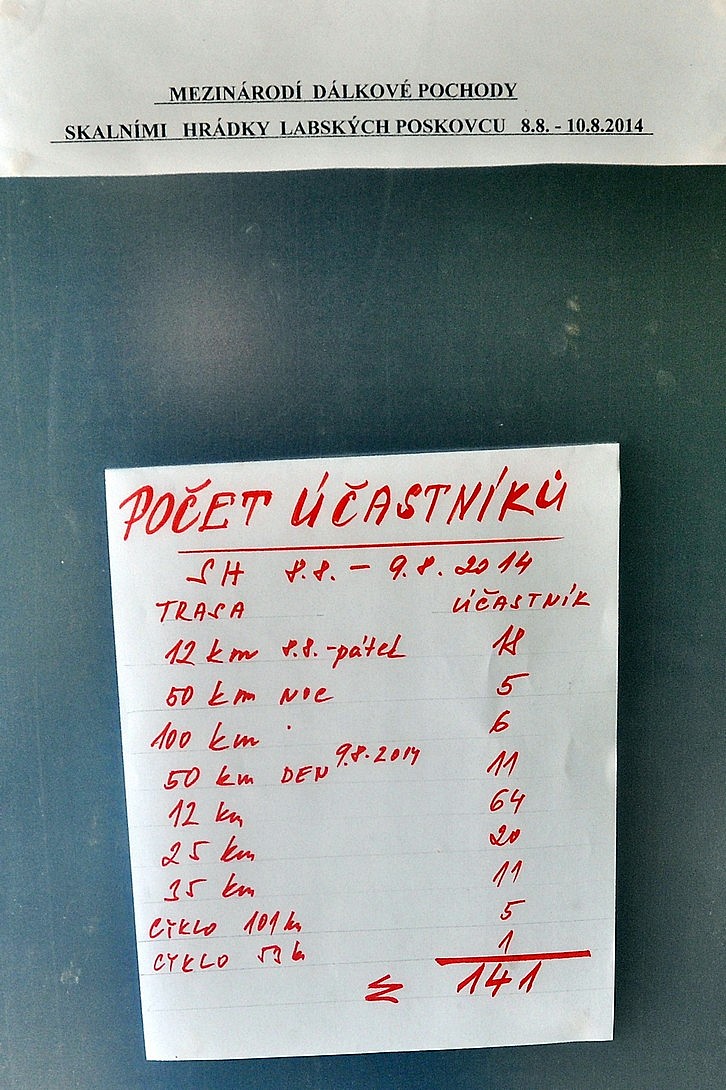 MEZINÁRODÍ DÁLKOVÉ POCHODY
SKALNÍMI HRÁDKY LABSKÝCH POSKOVCU 8.8. - 10.8.2014
POČET ÚČASTNÍKŮ
SH 8.8. - 9.8. 2014
TRASA ÚČASTNÍK
12 km 8.8.-pátek 18
50 km NOC 5
100 km 6
50 km DEN 9.8.2014 11
12 km 64
25 km 20
35 km 11
CYKLO 101 km 5
CYKLO 53 km 1
Σ 141